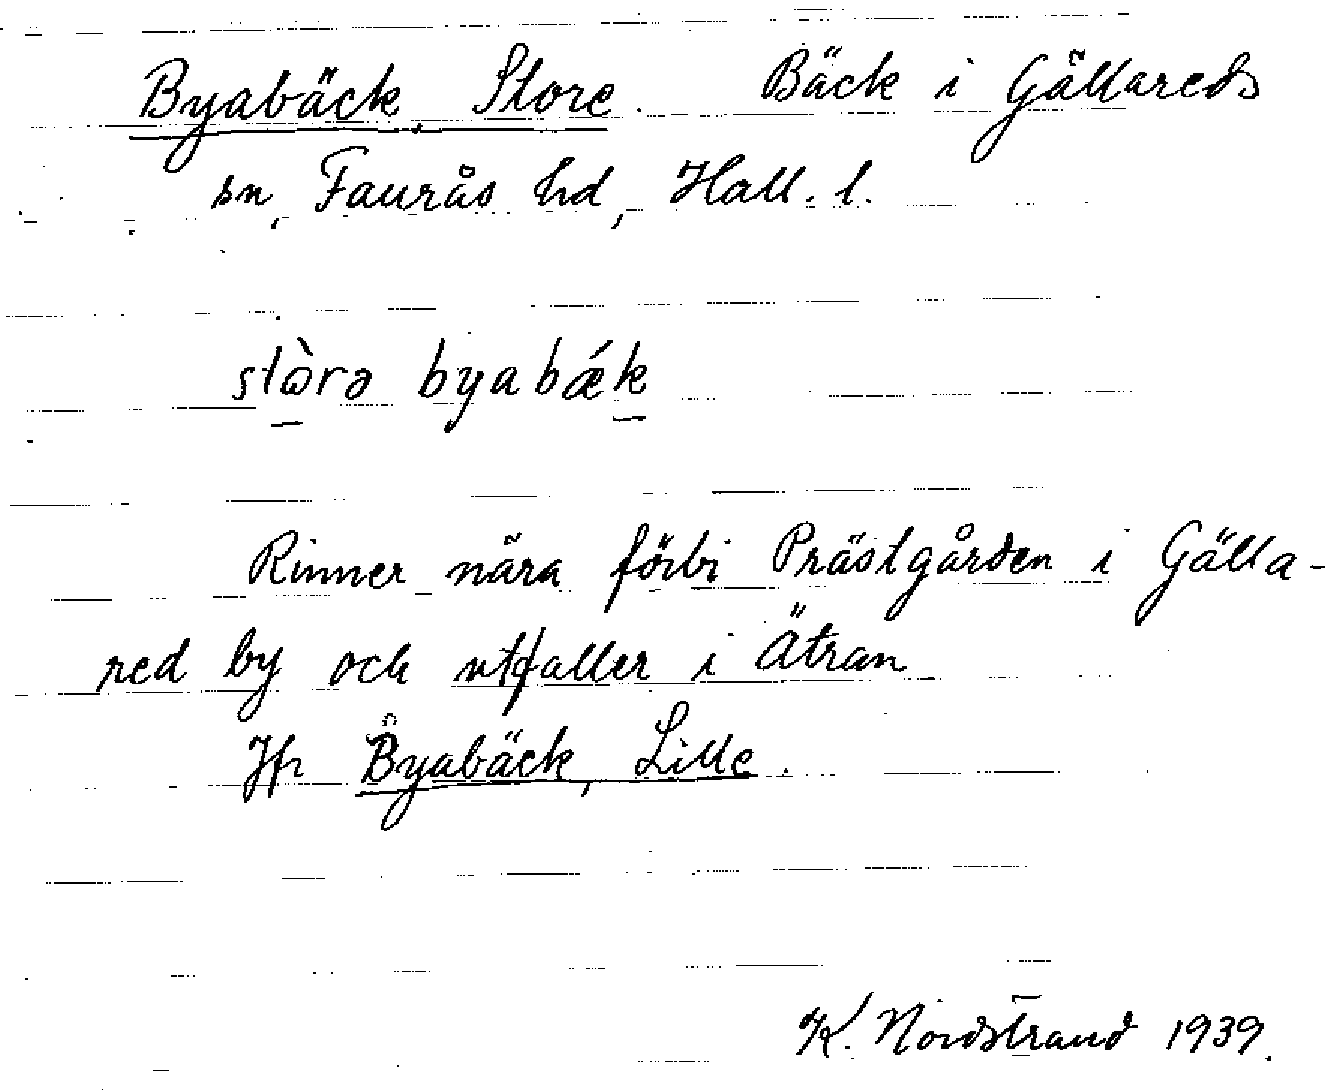 Byabäck, Store. Bäck i Gällareds
sn, Faurås hd, Hall. l.
stò̱rə byabǽḵ
Rinner nära förbi Prästgården i Gälla-
red by och utfaller i Ätran
Jfr Byabäck, Lille.
K. Nordstrand 1939.